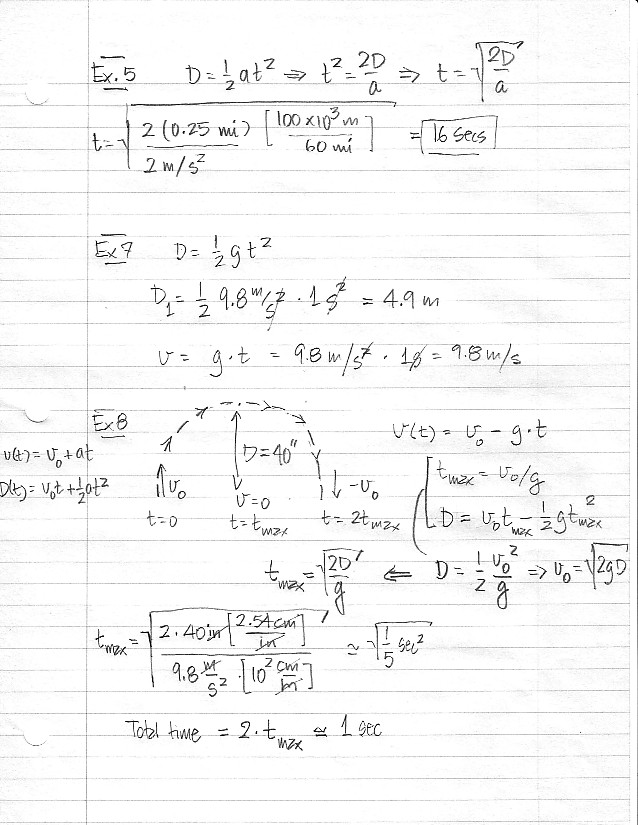 Ex. 5 D = ½ at² ⇒ t² = 2D/a ⇒ t = √(2D/a)
t = √(2 (0.25 mi) / 2 m/s² [100 x 10³ m / 60 mi]) = 16 secs
Ex 7 D = ½ g t²
D₁ = ½ 9.8 m/s² · 1 s² = 4.9 m
v = g · t = 9.8 m/s² · 1s = 9.8 m/s
Ex 8
v(t) = v₀ + at
D(t) = v₀t + ½at²
v₀
t=0
D = 40"
v=0
t = tmax
-v₀
t = 2tmax
v(t) = v₀ - g · t
tmax = v₀/g
D = v₀tmax - ½ g tmax²
tmax = √(2D/g) ⇐ D = ½ v₀²/g ⇒ v₀ = √(2gD)
tmax = √(2 · 40 in [2.54 cm / in] / 9.8 m/s² · [10² cm/m]) ≃ √(1/5 sec²)
Total time = 2 · tmax ≃ 1 sec